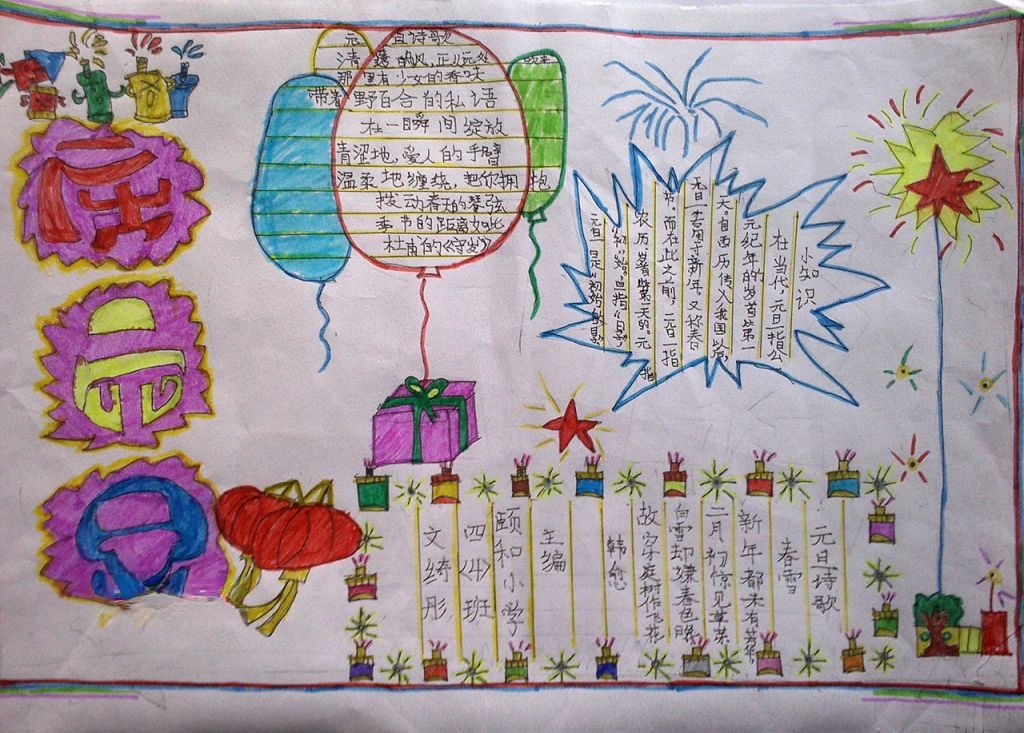 元旦诗歌
清 的风,正从远处
那里有少女的香味
带着野百合的私语
在一瞬间绽放
青涩地,爱人的手臂
温柔地缠绕,把你拥抱
拨动春天的琴弦
季节的距离如此
杜甫的《守岁》
小知识
在当代,元旦一指公
元纪年的岁首第一
天。自西历传入我国以后,
元旦一名用于新年,又称春
节。而在此之前,元旦一指
农历岁首第一天的。元 指
"初""始",旦指"日子",
元旦一是"初始的日子"
元旦诗歌
春雪
新年都未有芳华,
二月初惊见草芽
白雪却嫌春色晚
故穿庭树作飞花
韩愈
主编
颐和小学
四《4》班
文绮彤